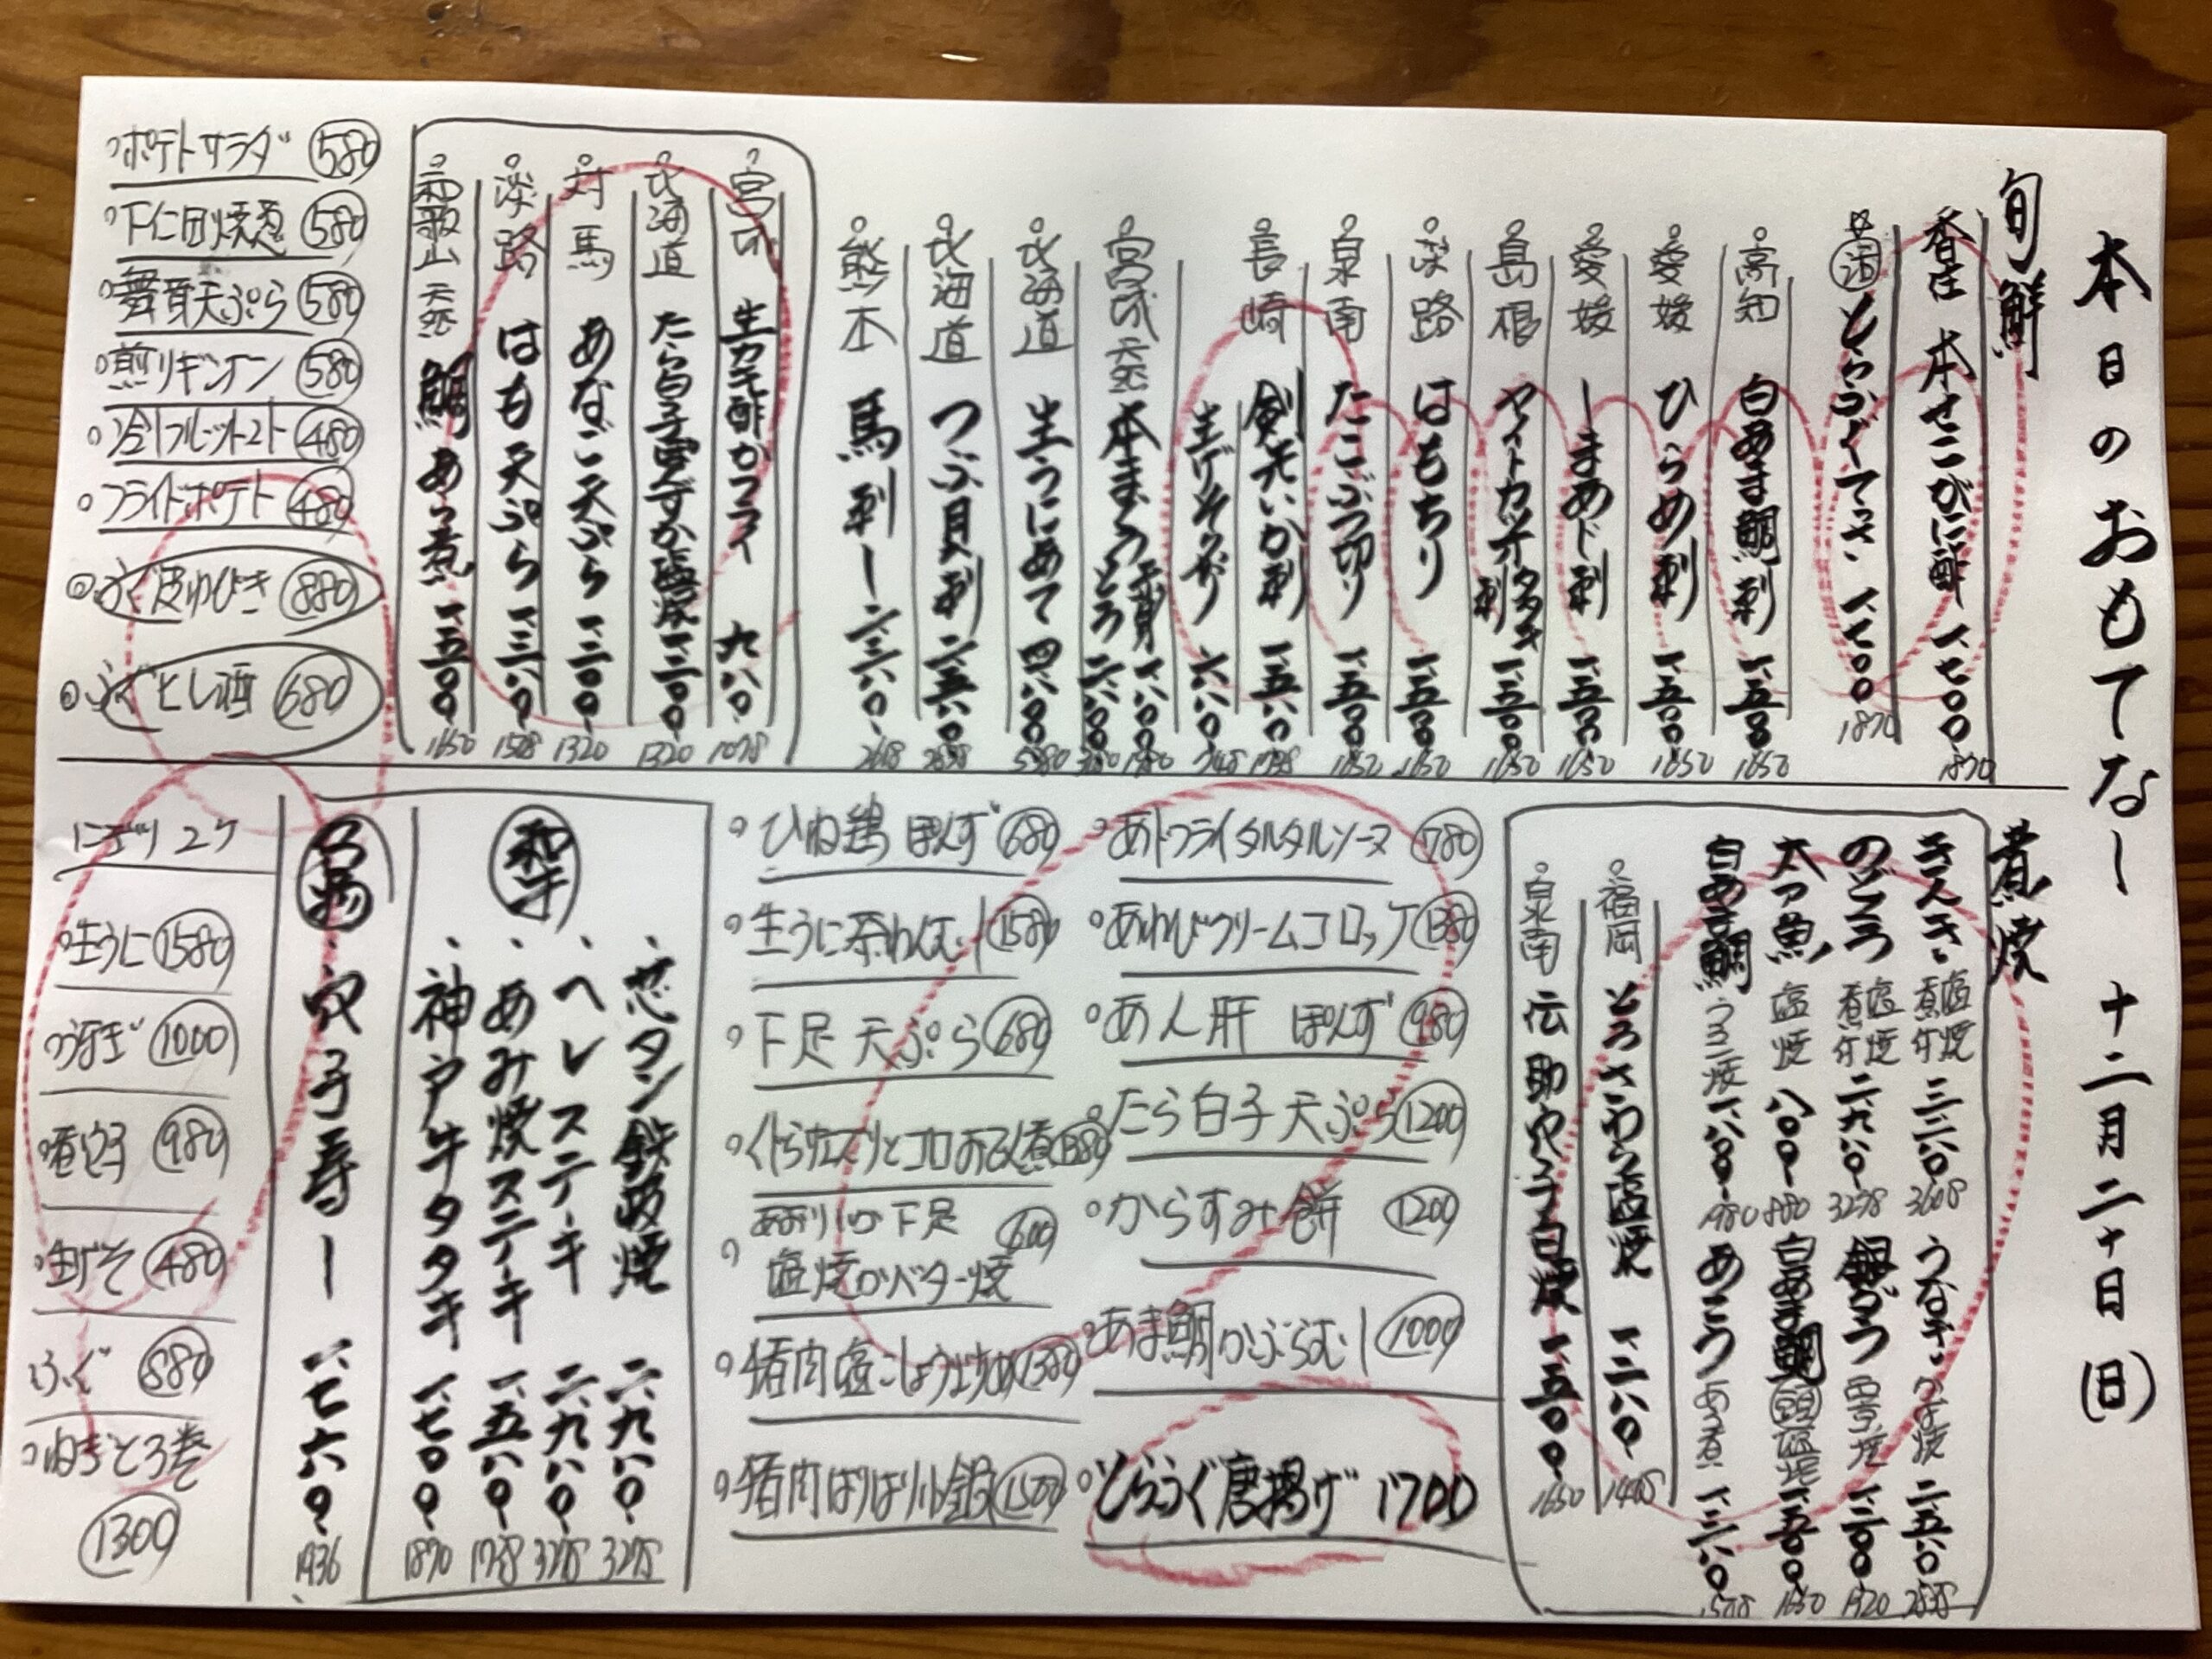 本日のおもてなし 十二月二十日(日)
旬鮮
香住 本せこがに酢 一、七〇〇 1870
活 とらふぐてっさ 一、七〇〇 1870
高知 白あま鯛刺 一、五〇〇 1650
愛媛 ひらめ刺 一、五〇〇 1650
愛媛 しまあじ刺 一、五〇〇 1650
島根 ヤイトカツオ タタキ 刺 一、五〇〇 1650
淡路 はもちり 一、五〇〇 1650
泉南 たこぶつ切り 一、五〇〇 1650
長崎 剣先いか刺 一、五八〇 1738
生げそ 六八〇 748
宮城 天然 本まぐろ 赤身 一、八〇〇 1980
とろ 二、八〇〇
北海道 生うにあて 四、八〇〇 5280
北海道 つぶ貝刺 二、五八〇 2838
熊本 馬刺し 二、三八〇 2618
宮城 生カキ酢かフライ 九八〇 1078
北海道 たら白子 塩焼 一、二〇〇 1320
対馬 あなご天ぷら 一、二〇〇 1320
淡路 はも天ぷら 一、三八〇 1518
和歌山 天然 鯛あら煮 一、五〇〇 1650
ポテトサラダ 580
下仁田焼葱 580
舞茸天ぷら 580
煎りギンナン 580
冷しフルーツトマト 480
フライドポテト 480
ふぐ皮ゆびき 880
ふぐひれ酒 680
煮焼
きんき 塩焼 煮付 三、二八〇 3608
のどぐろ 塩焼 煮付 二、九八〇 3278
太刀魚 塩焼 八〇〇 880
白あま鯛 うろこ焼 一、八〇〇 1980
うなぎ 二、五八〇 2838
銀だら 西京焼 一、二〇〇 1320
白あま鯛 頭 塩焼 一、五〇〇 1650
あこう あら煮 一、三八〇 1518
福岡 とろさわら塩焼 一、二八〇 1408
泉南 伝助穴子白焼 一、五〇〇 1650
あじフライタルタルソース 780
あわびクリームコロッケ 1380
あん肝 ぽんず 980
たら白子天ぷら 1200
からすみ餅 1200
あま鯛かぶらむし 1000
とらふぐ唐揚げ 1700
ひね鶏ぽんず 680
生うに茶わんむし 1580
下足天ぷら 680
くじらさえずりとコロおでん煮 1380
あおりいか下足 600
塩焼orバター焼
猪肉塩こしょう 1380
猪肉はりはり小鍋 1500
和牛
芯タン鉄板焼 二、九八〇 3278
ヘレステーキ 二、九八〇 3278
あみ焼ステーキ 一、五八〇 1738
神戸牛タタキ 一、七〇〇 1870
名物 穴子寿し 一、七六〇 1936
にぎり 2ケ
生うに 1580
うなぎ 1000
煮穴子 980
生げそ 480
ふぐ 880
ねぎとろ巻
1300